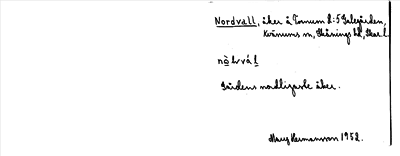 Nordvall, åker å Tanum 2:5 Galegården,
Kvänums sn, Skånings hd, Skar. l.
nòrvál
Gårdens nordligaste åker.
Mary Hermansson 1952.